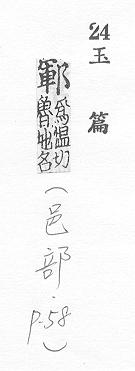 24 玉篇
鄆
爲温切
魯地名
(邑部 p.58)